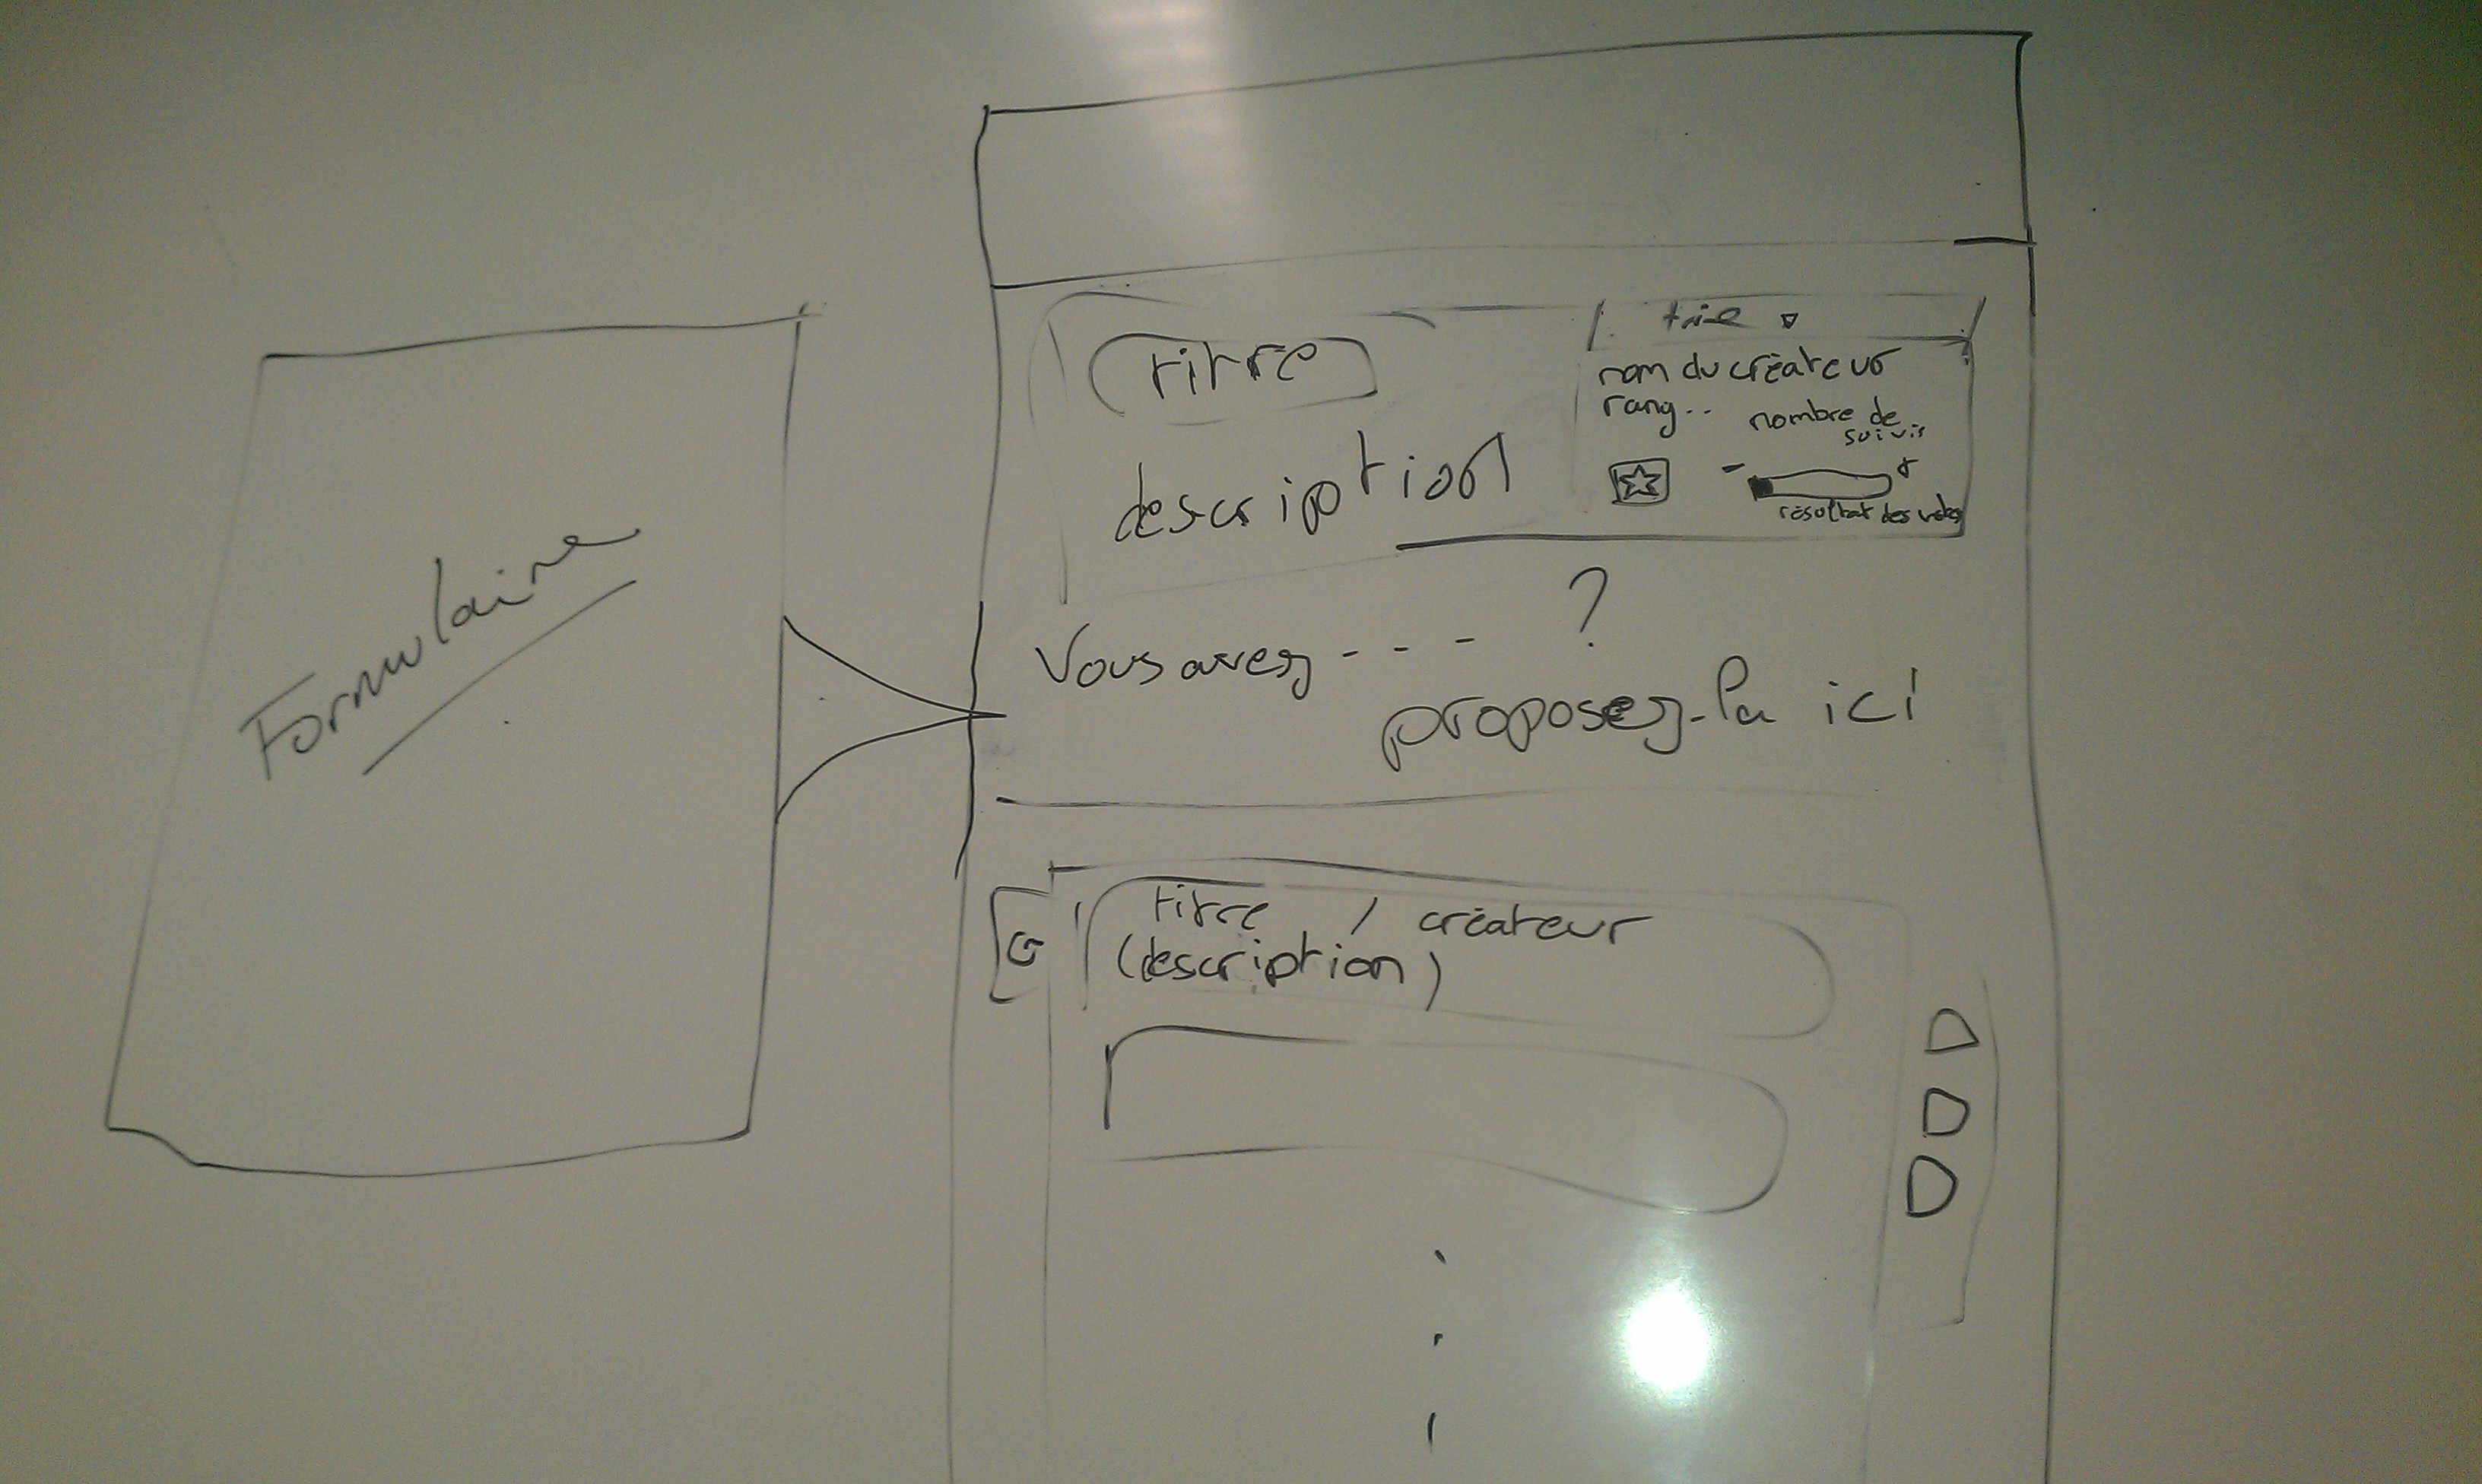 Formulaire
titre
description
trie
nom du créateur
rang..
nombre de
suivis
- +
résultat des votes
Vous avez - - - ?
proposez-la ici
titre / créateur
(description)